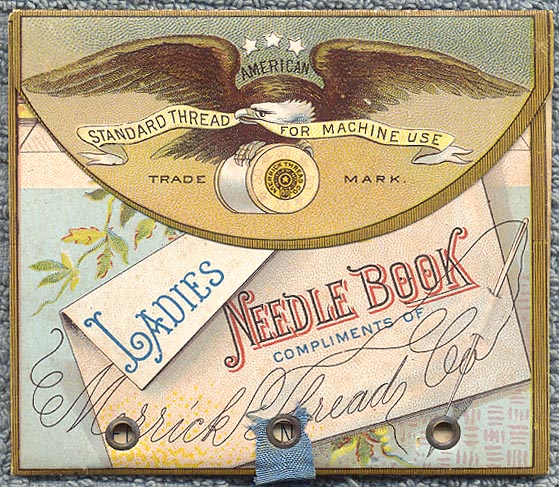 AMERICAN
STANDARD THREAD FOR MACHINE USE
TRADE MARK.
MERRICK THREAD CO.
LADIES
NEEDLE BOOK
COMPLIMENTS OF
Merrick Thread Co
N